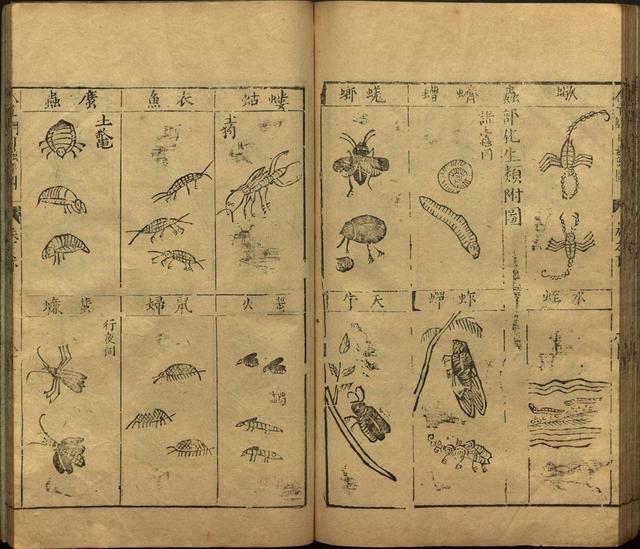 蠍
蟲部化生類附圖
蠐螬
諸蠹同
蜣螂
水蛭
蚱蟬
天牛
螻蛄
土狗
衣魚
䗪蟲
土鼈
螢火
鼠婦
蜚蠊
行夜同